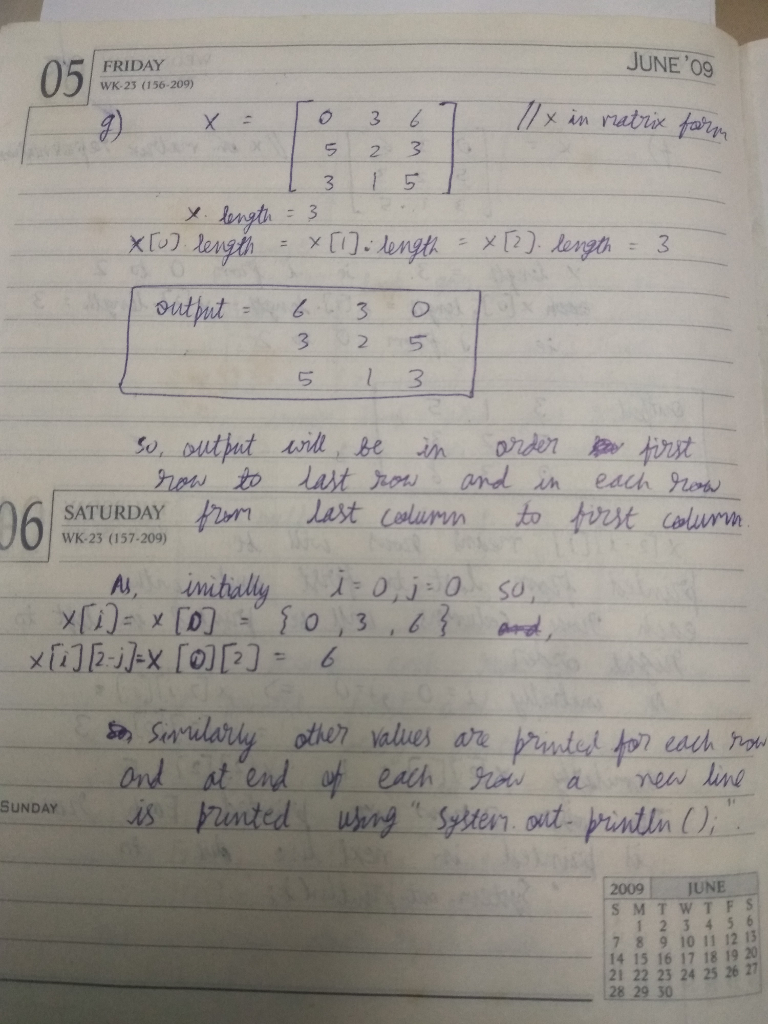 05 FRIDAY JUNE '09
WK-23 (156-209)
g) x = [ 0 3 6 // x in matrix form
5 2 3
3 1 5 ]
x. length = 3
x[0]. length = x[1]. length = x[2]. length = 3
output = 6 3 0
3 2 5
5 1 3
so, output will, be in order first
row to last row and in each row
06 SATURDAY from last column to first column.
WK-23 (157-209)
As, initially i = 0, j = 0 so,
x[i] = x[0] = { 0, 3, 6 } and,
x[i][2-j] = x[0][2] = 6
so, similarly other values are printed for each row
and at end of each row a new line
SUNDAY
is printed using "System.out.println();".
2009 JUNE
S M T W T F S
1 2 3 4 5 6
7 8 9 10 11 12 13
14 15 16 17 18 19 20
21 22 23 24 25 26 27
28 29 30